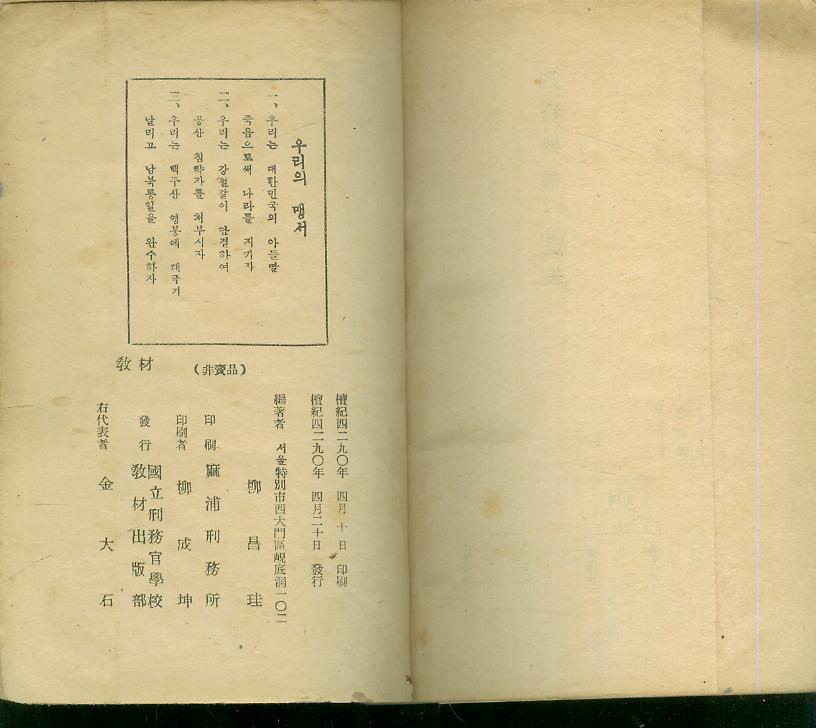 우리의 맹서
一、우리는 대한민국의 아들딸
죽음으로써 나라를 지키자
二、우리는 강철같이 단결하여
공산 침략자를 쳐부시자
三、우리는 백두산 영봉에 태극기
날리고 남북통일을 완수하자
敎材
(非賣品)
檀紀四二九〇年 四月 十 日 印刷
檀紀四二九〇年 四月二十日 發行
編著者 서울特別市西大門區峴底洞一〇二
柳 昌 珪
印刷 麻浦刑務所
印刷者 柳 成 坤
發行 國立刑務官學校
敎材出版部
右代表者 金 大 石